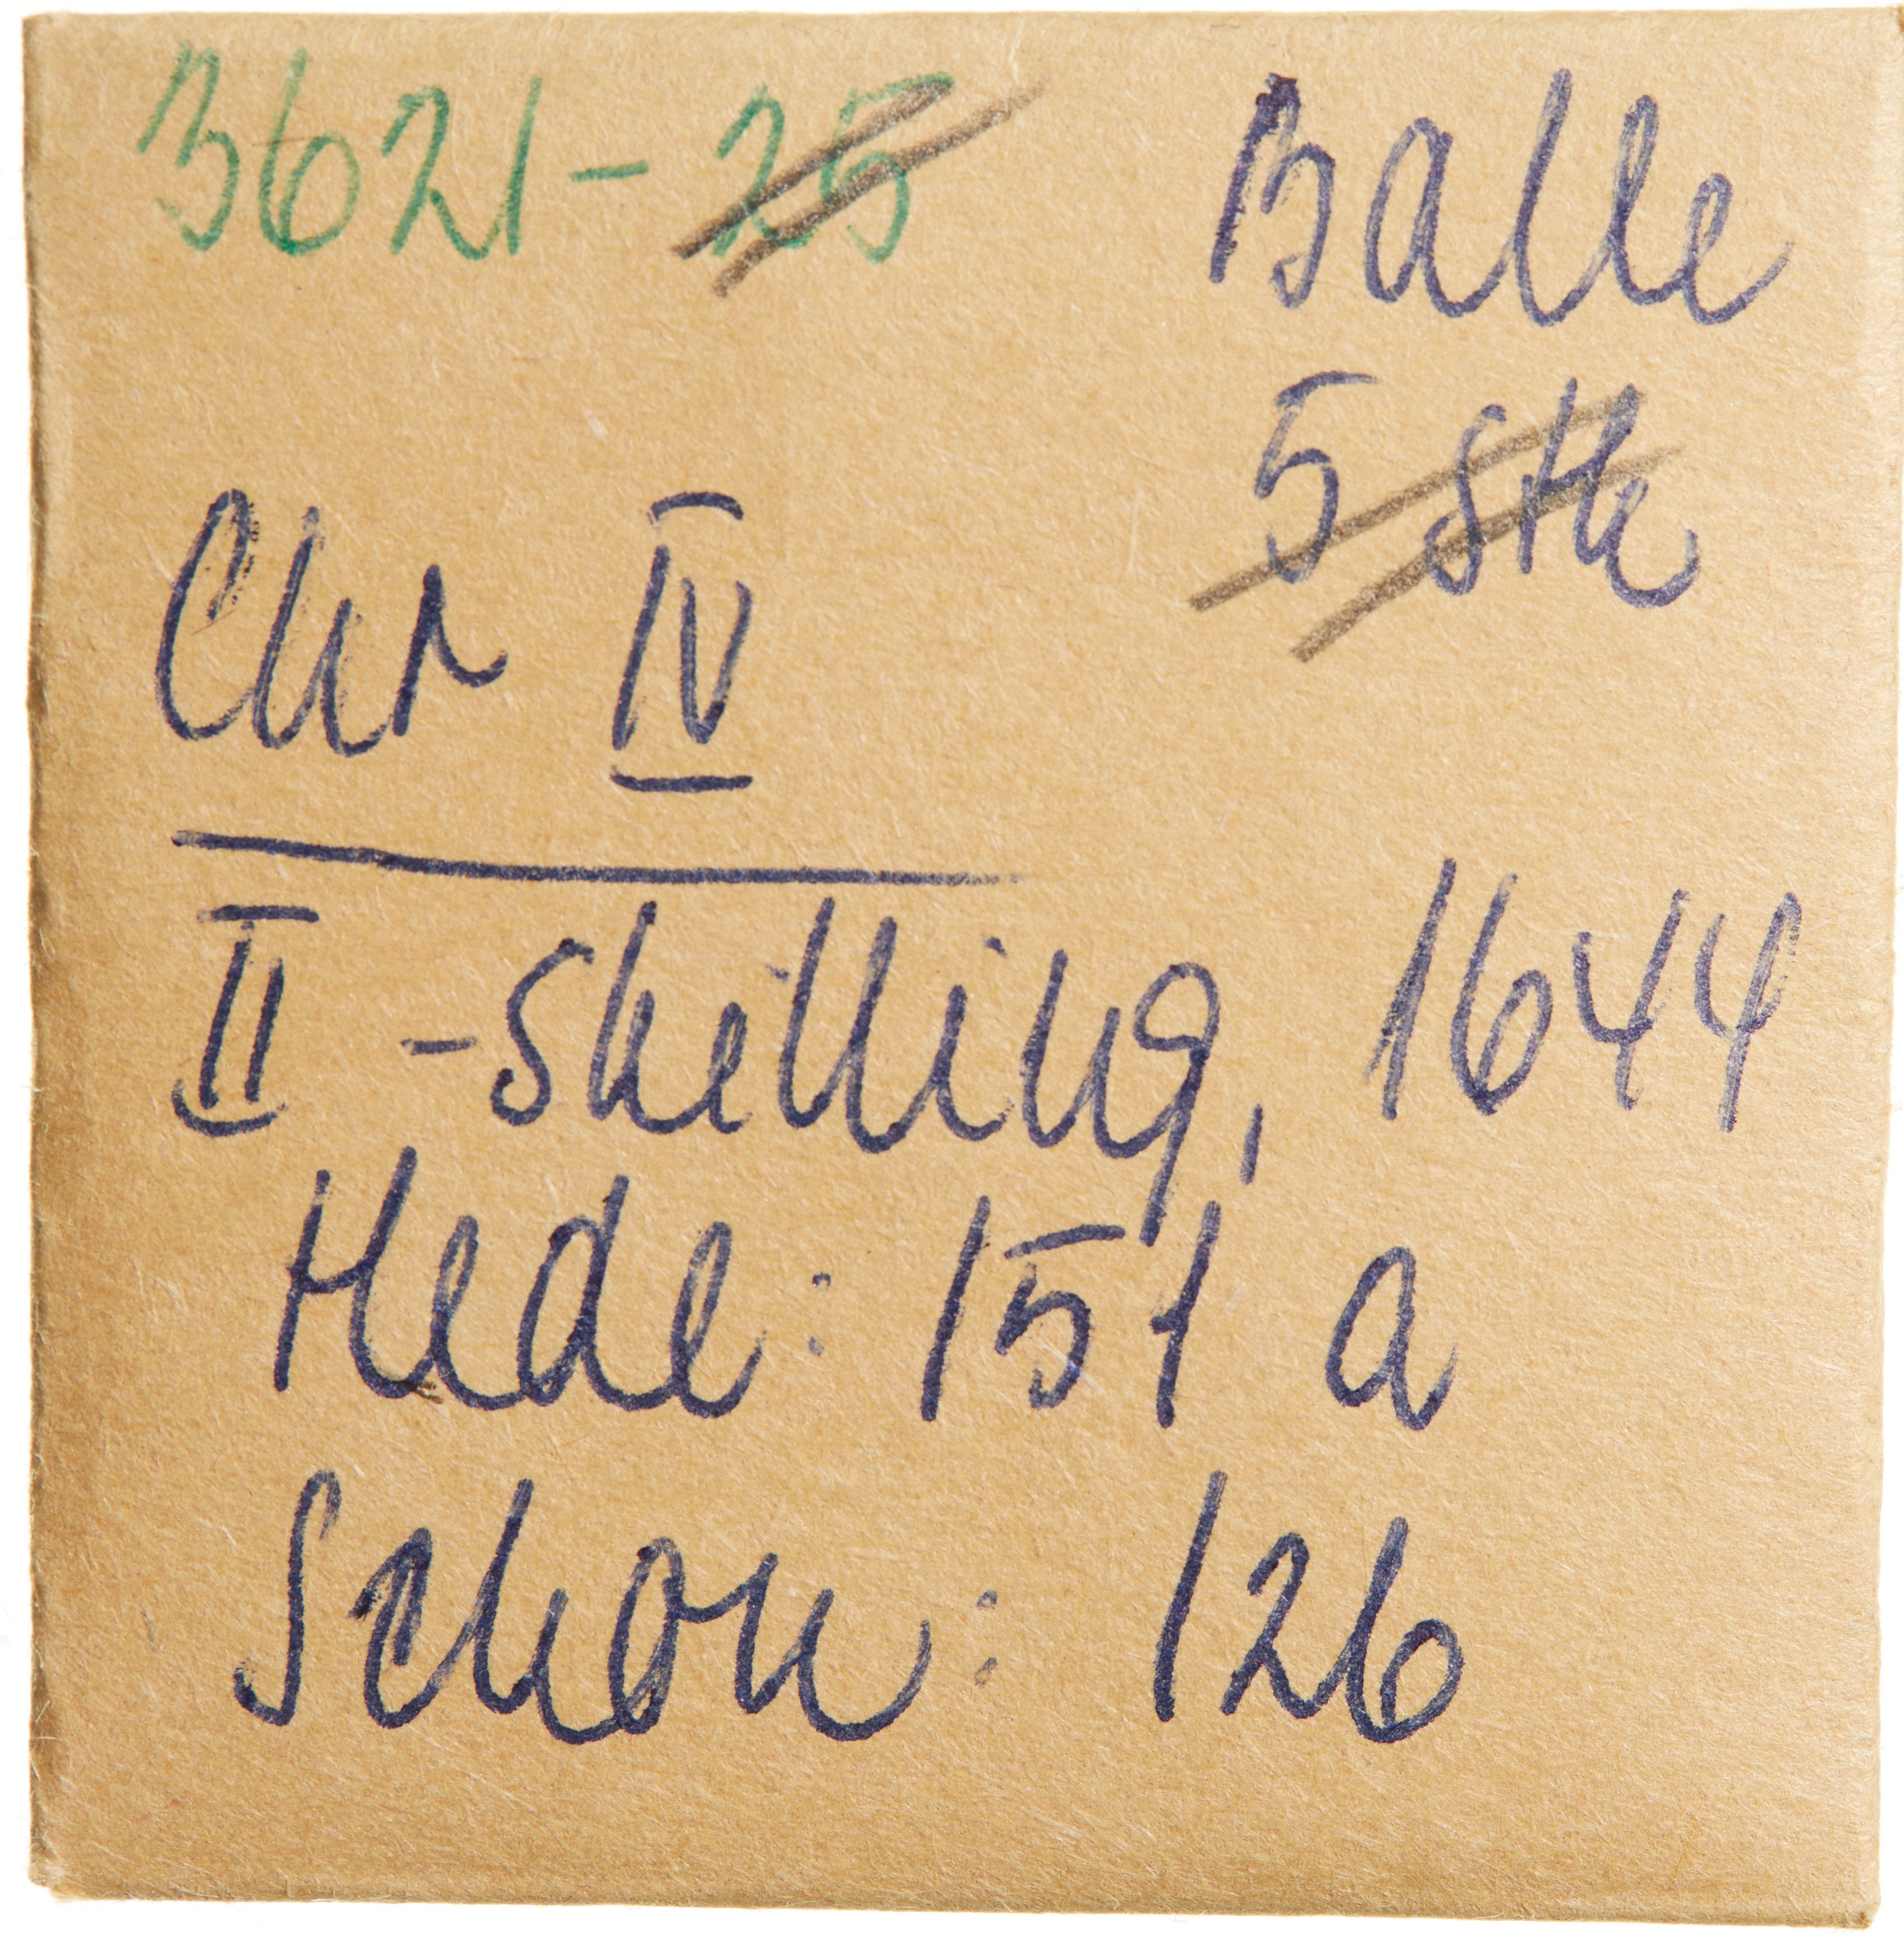 3621-25 Balle
5 stk
Chr IV
II -Skilling, 1644
Hede: 151 a
Schou: 126